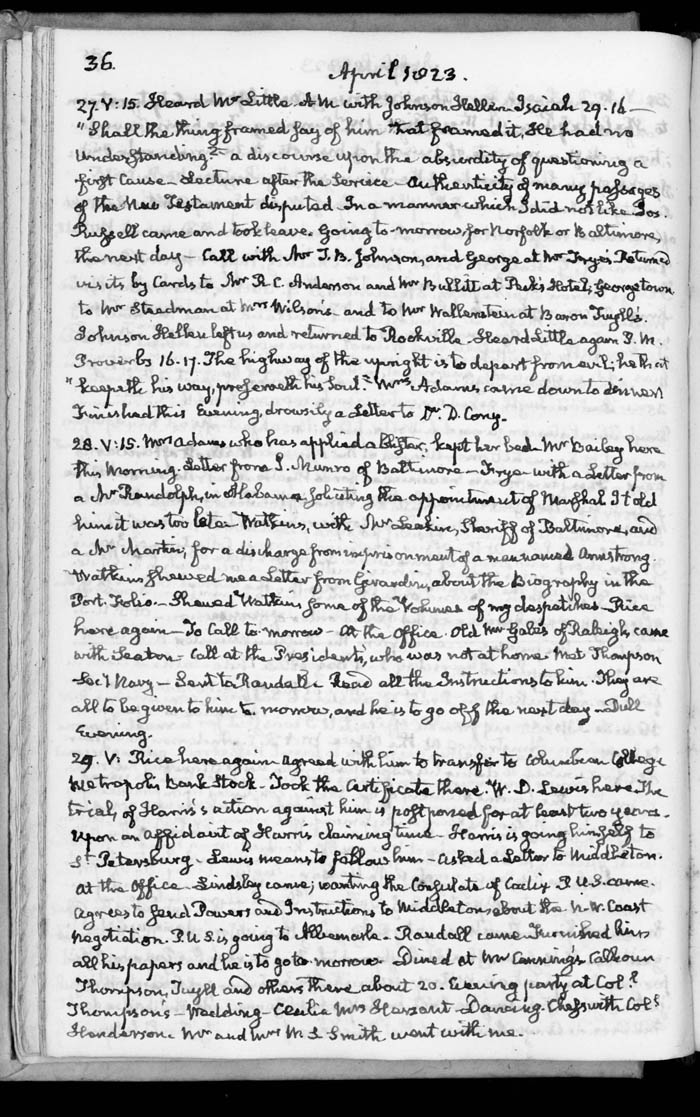 36.
April 1823.
27. V:15. Heard Mr Little. A.M. with Johnson Hellen. Isaiah 29. 16 —
"Shall the thing framed say of him that framed it, He had no
understanding?" a discourse upon the absurdity of questioning a
first Cause — Lecture after the Service — Authenticity of many passages
of the New Testament disputed. In a manner which I did not like. Jos.
Russell came and took leave. Going to-morrow, for Norfolk or Baltimore,
the next day — Call with Mr T. B. Johnson, and George at Mr Frye's. Returned
visits by Cards to Mr R. C. Anderson and Mr Bullitt at Peck's Hotel; Georgetown
to Mr Steadman at Mrs Wilson's and to Mr Wallenstein at Baron Tuyll's.
Johnson Hellen left us and returned to Rockville. Heard Little again P.M.
Proverbs 16. 17. The highway of the upright is to depart from evil; he that
"keepeth his way, preserveth his Soul." Mrs Adams, came down to dinner
Finished this Evening, drowsily a Letter to Dr. D. Cony.
28. V:15. Mrs Adams who has applied a blister, kept her bed. Mr Bailey here
this Morning. Letter from I. Munro of Baltimore — Frye with a Letter from
a Mr Randolph, in Alabama soliciting the appointment of Marshal. I told
him it was too late. Watkins, with Mr Leakin, Sheriff of Baltimore, and
a Mr Martin, for a discharge from imprisonment of a man named Armstrong.
Watkins shewed me a Letter from Girardin, about the Biography in the
Port. Folio. — Shewed Watkins some of the Volumes of my despatches — Rice
here again — To call to-morrow — At the Office. Old Mr Gales of Raleigh, came
with Seaton — Call at the President's, who was not at home. Met Thompson
Sec'y Navy — Sent to Randall. Read all the Instructions to him. They are
all to be given to him to-morrow, and he is to go off the next day — Dull
Evening.
29. V: Rice here again agreed with him to transfer to Columbian College
Metropolis Bank Stock — Took the Certificate there. W. D. Lewis here. The
trial, of Harris's action against him is postponed for at least two years.
upon an affidavit of Harris claiming time — Harris is going himself to
St Petersburg. Lewis means to follow him — asked a Letter to Middleton.
At the Office — Lindsley came; wanting the Consulate of Cadix P.U.S. came.
Agrees to send Powers and Instructions to Middleton about the N.W. Coast
Negotiation. P.U.S. is going to Albemarle. Randall came. Furnished him
all his papers and he is to go to-morrow — Dined at Mr Canning's Calhoun
Thompson, Tuyll and others there about 20. Evening party at Col.l
Thompson's — Wedding — Cecilia Mrs — Dancing. Chess with Col.l
Henderson. Mr and Mrs M. L. Smith went with me.